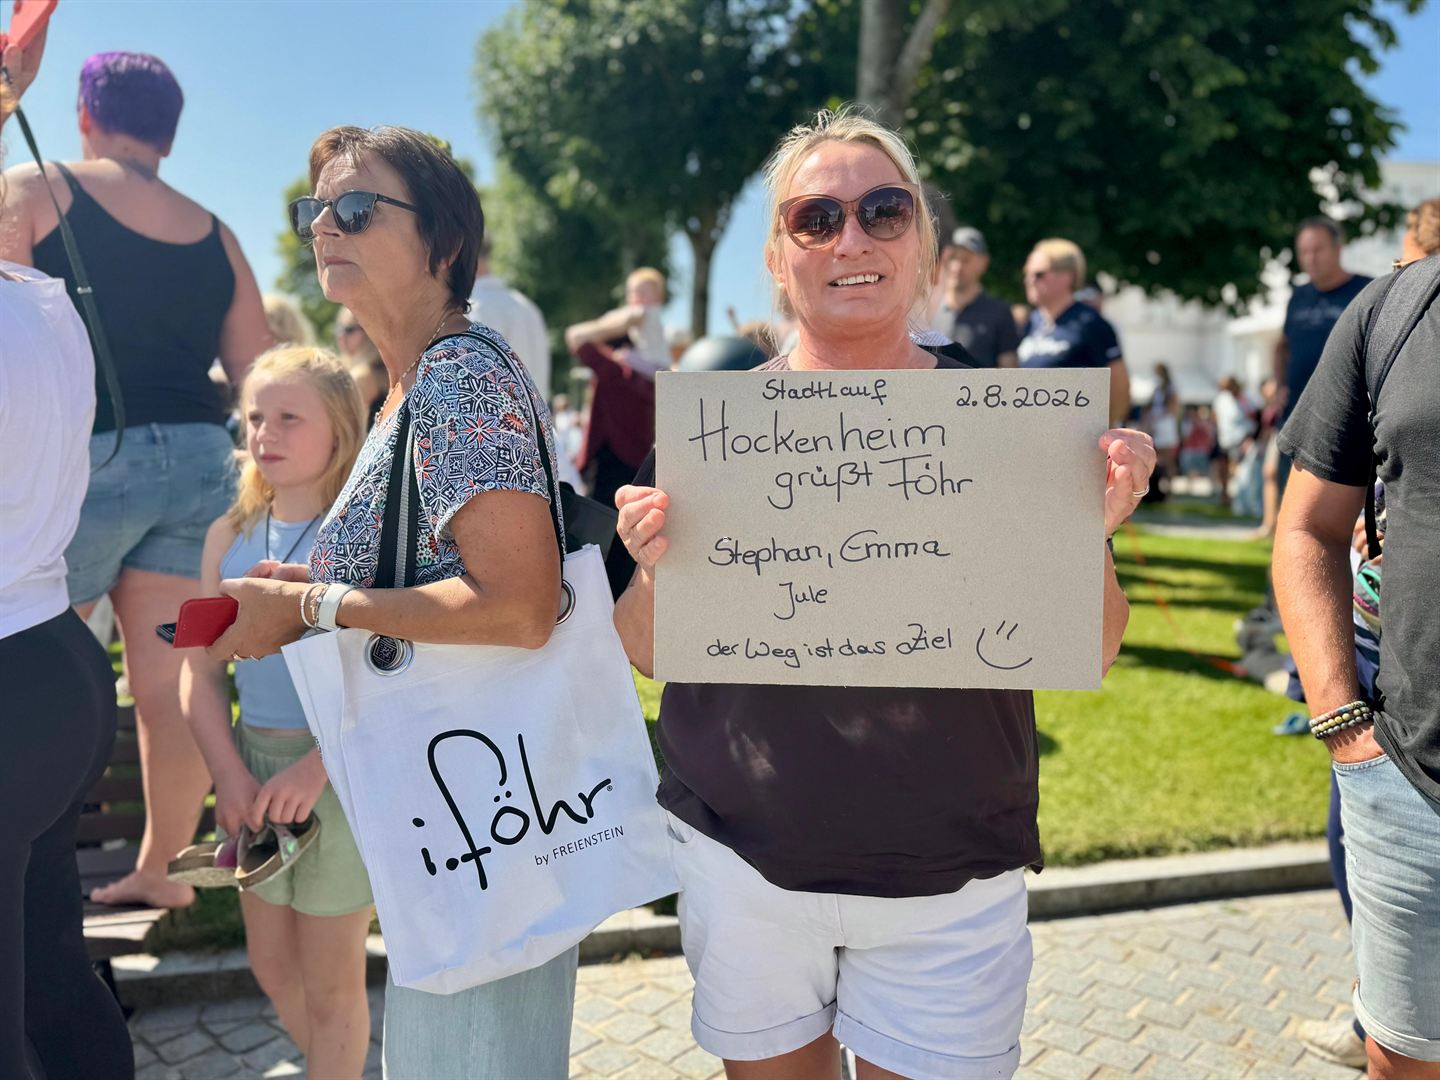 StadtLauf 2.8.2026
Hockenheim
grüßt Föhr
Stephan, Emma
Jule
der Weg ist das Ziel
i.föhr®
by FREIENSTEIN